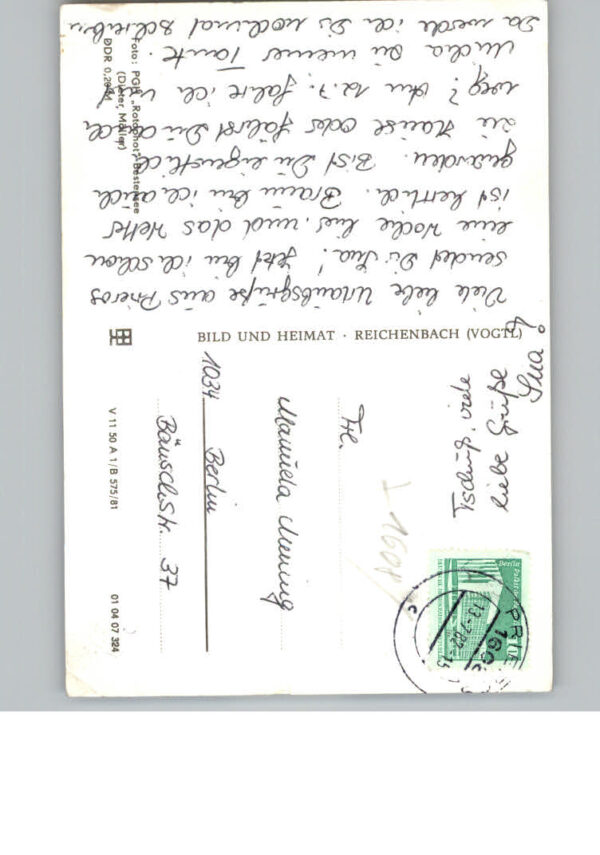 Viele liebe Urlaubsgrüße aus Prieros
sendet Dir Ina! Jetzt bin ich schon
eine Woche hier, und das Wetter
ist herrlich. Braun bin ich auch
geworden. Bist Du eigentlich
zu Hause oder fährst Du auch
weg? Am 12.7. fahre ich
zu meiner Tante.
Da werde ich Dir nochmal schreiben
Tschüß, viele
liebe Grüße
Ina
Foto: PGH „Rotophot“ Bestensee
(Dieter, Möller)
DDR 0,20 M
BILD UND HEIMAT · REICHENBACH (VOGTL)
V 11 50 A 1/B 575/81
01 04 07 324
Frl.
Manuela
1034 Berlin
Bänschstr. 37
10